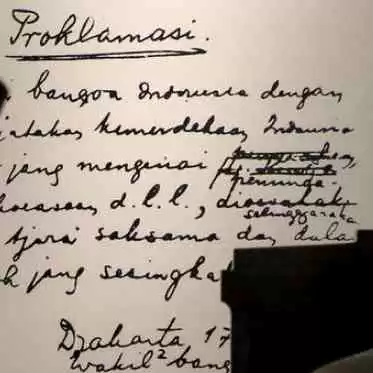 Proklamasi.
bangsa Indonesia dengan
jatakan kemerdekaan Indonesia
jang mengenai
pemindahan
kekoeasaan d.l.l., diselenggarakan
tjara saksama dan dalam
jang sesingkat
Djakarta, 17
Wakil2 bang